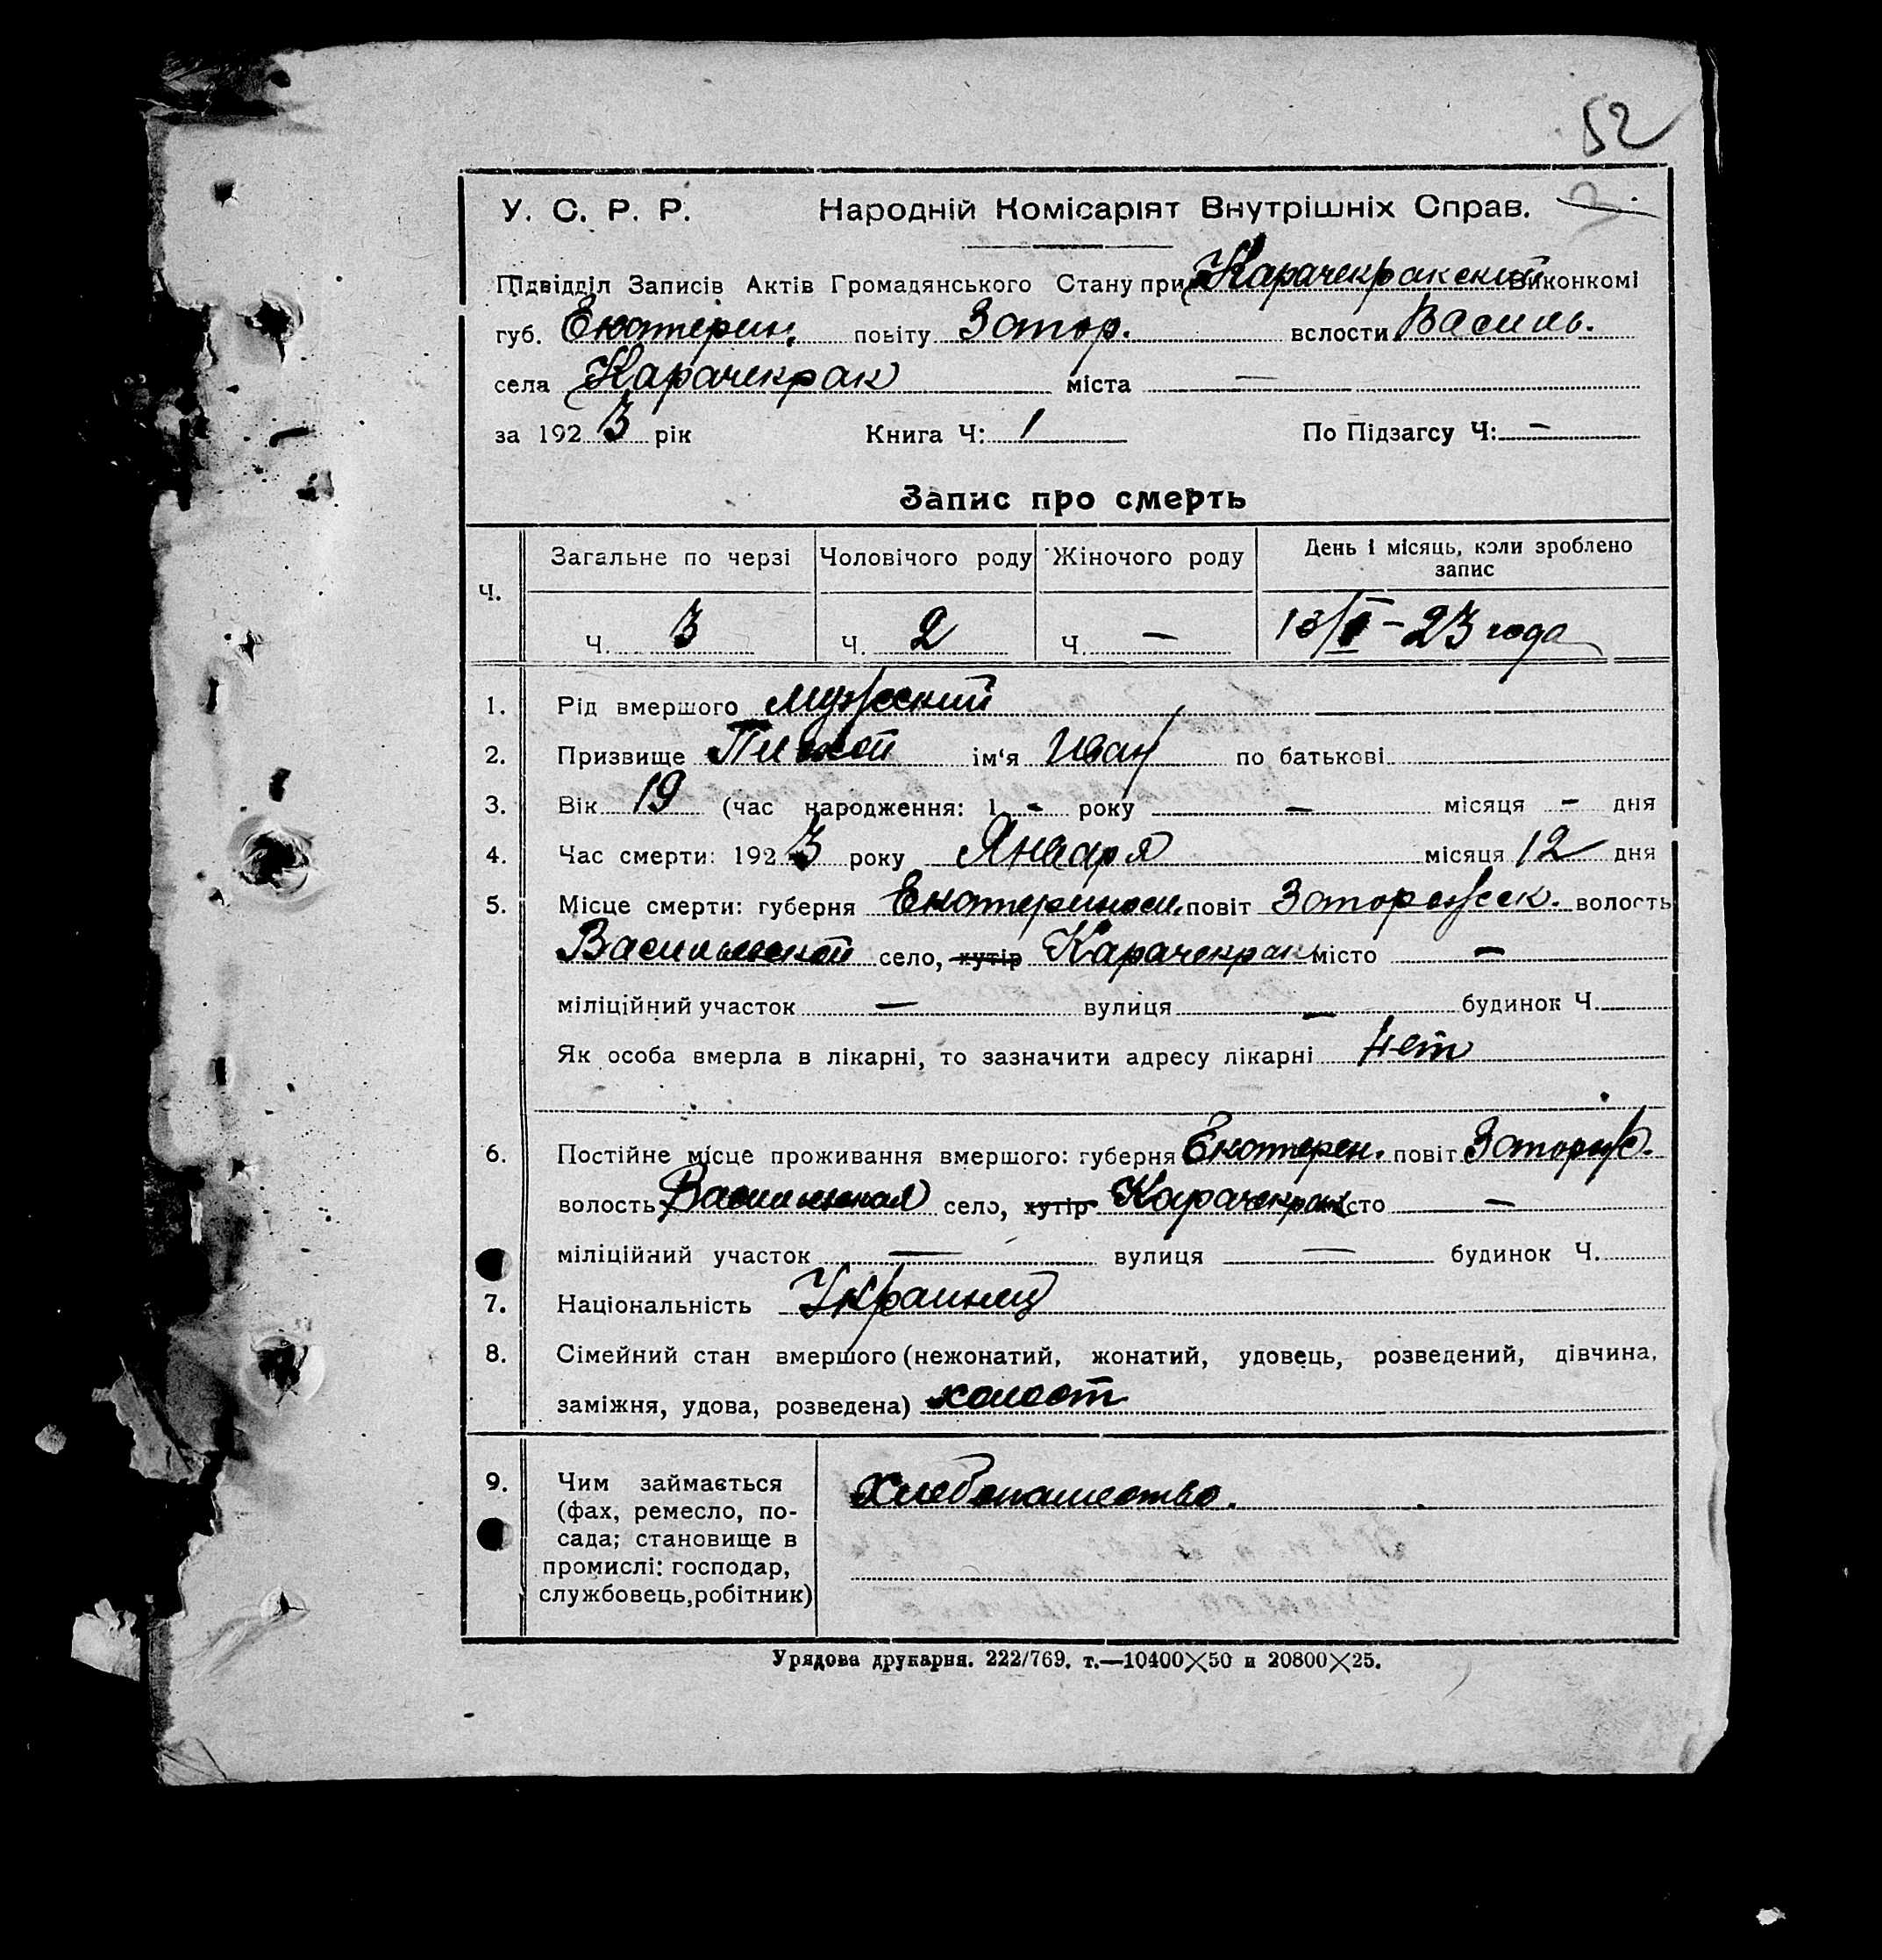 52
У. С. Р. Р. Народній Комісаріят Внутрішніх Справ. 3.
Підвідділ Записів Актів Громадянського Стану при Карачекракский Виконкомі
губ. Екатерин. повіту Запор. волости Василь.
села Карачекрак міста —
за 1923 рік Книга Ч: 1 По Підзагсу Ч: —
Запис про смерть
Ч. Загальне по черзі Чоловічого роду Жіночого роду День і місяць, коли зроблено запис
Ч. 3 Ч. 2 Ч. — 13/I – 23 года
1. Рід вмершого мужеский
2. Призвище ім'я Иван по батькові
3. Вік 19 (час народження: 1 - року — місяця - дня
4. Час смерти: 1923 року Января місяця 12 дня
5. Місце смерти: губерня Екатеринос. повіт Запорожск. волость
Васильевской село, хутір Карачекрак місто —
міліційний участок — вулиця — будинок Ч.
Як особа вмерла в лікарні, то зазначити адресу лікарні нет
6. Постійне місце проживання вмершого: губерня Екатерен. повіт Запорож.
волость село, хутір Карачекрак місто —
міліційний участок — вулиця — будинок Ч.
7. Національність Украинец
8. Сімейний стан вмершого (нежонатий, жонатий, удовець, розведений, дівчина,
заміжня, удова, розведена) холост
9. Чим займається хлебопашество.
(фах, ремесло, по-
сада; становище в
промислі: господар,
службовець, робітник)
Урядова друкарня. 222/769. т.—10400×50 и 20800×25.